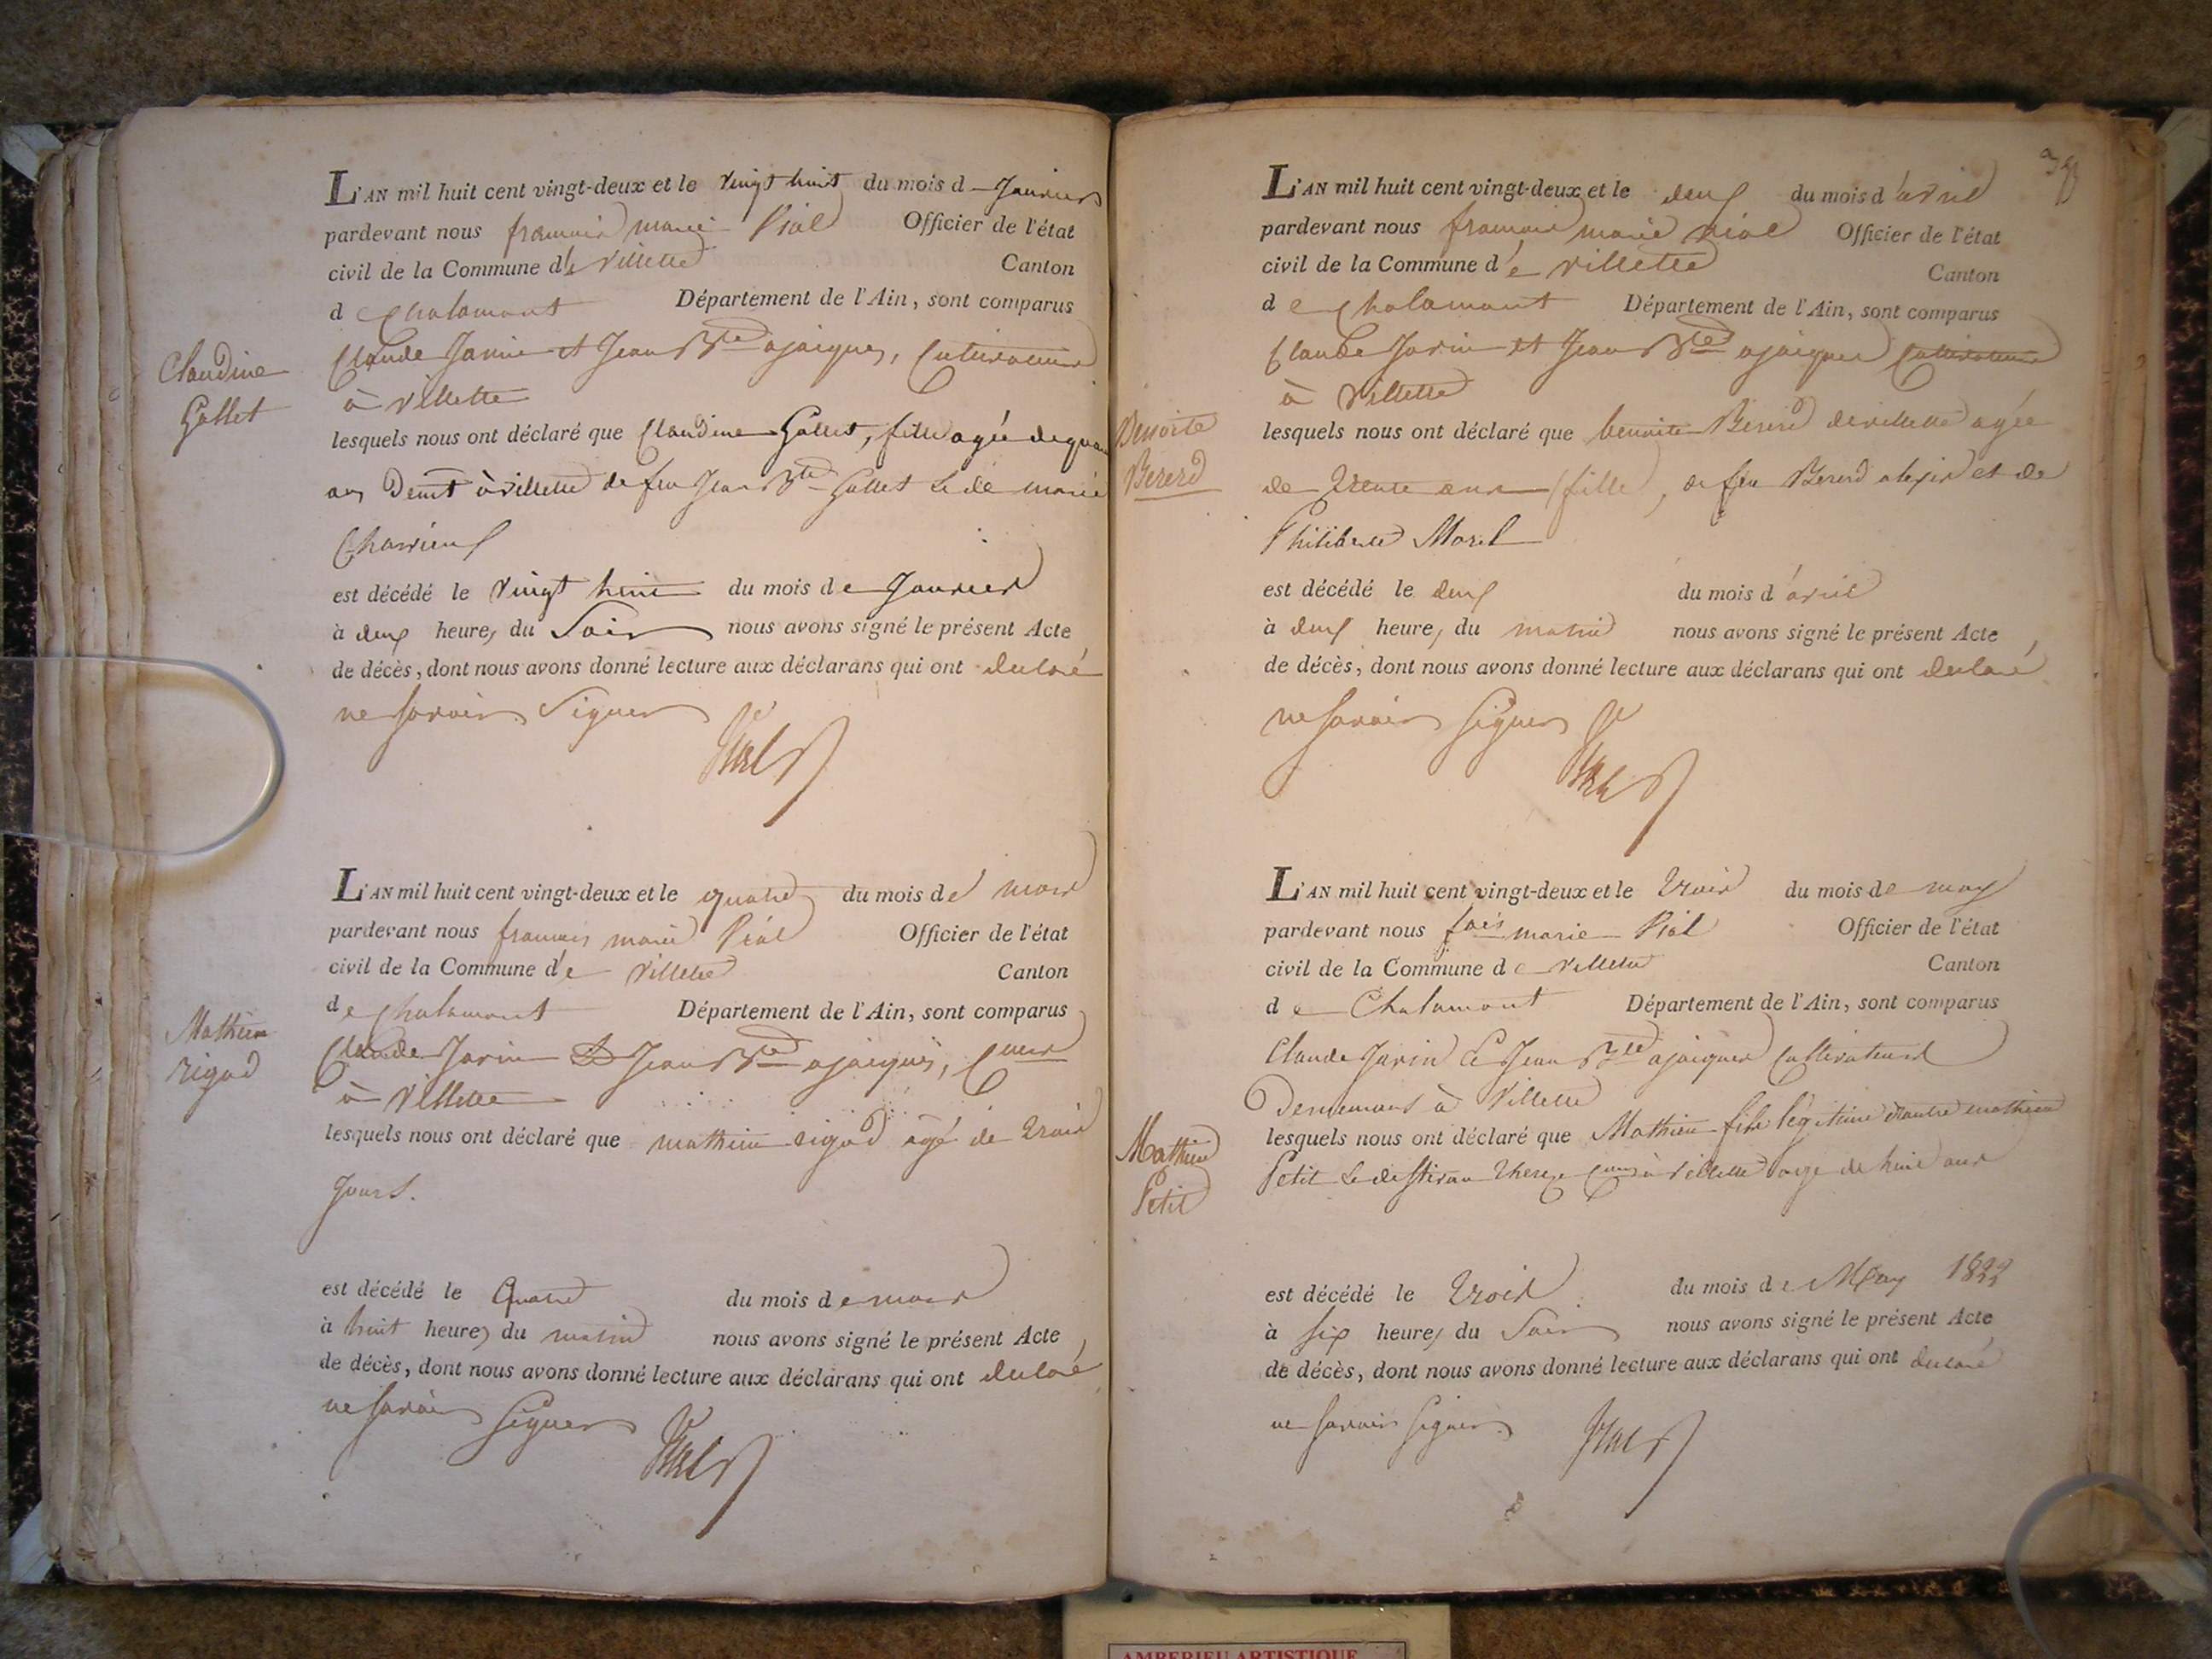 Claudine
Gallet
L'AN mil huit cent vingt-deux et le vingt huit du mois d Janvier
pardevant nous francois marie Vial Officier de l'état
civil de la Commune de villette Canton
d e Chalamont Département de l'Ain, sont comparus
Claude Janin et Jean Bte ajacques, Cultivateurs
à villette
lesquels nous ont déclaré que Claudine Gallet, fille agée de
ans à villette de feu Jean Bte Gallet & de marie
est décédé le vingt huit du mois d e Janvier
à deux heures du Soir nous avons signé le présent Acte
de décès, dont nous avons donné lecture aux déclarans qui ont declaré
ne savoir Signer
Vial
Mathieu
rigod
L'AN mil huit cent vingt-deux et le quatre du mois de mars
pardevant nous francois marie Vial Officier de l'état
civil de la Commune de villette Canton
d e Chalamont Département de l'Ain, sont comparus
Claude Janin & Jean Bte ajacques, Cteurs
à Villette
lesquels nous ont déclaré que mathieu rigod agé de trois
jours.
est décédé le Quatre du mois d e mars
à huit heures du matin nous avons signé le présent Acte
de décès, dont nous avons donné lecture aux déclarans qui ont declaré
ne savoir Signer
Vial
L'AN mil huit cent vingt-deux et le deux du mois d'avril
pardevant nous francois marie vial Officier de l'état
civil de la Commune de villette Canton
d e Chalamont Département de l'Ain, sont comparus
Claude Janin et Jean Bte ajacques Cultivateurs
à Villette
Benoite
Bererd
lesquels nous ont déclaré que benoite Bererd de villette agée
de trente ans fille, de feu Bererd alexis et de
Philiberte Morel
est décédé le deux du mois d'avril
à deux heures du matin nous avons signé le présent Acte
de décès, dont nous avons donné lecture aux déclarans qui ont declaré
ne savoir signer
Vial
L'AN mil huit cent vingt-deux et le trois du mois de may
pardevant nous fcois marie Vial Officier de l'état
civil de la Commune d e Villette Canton
d e Chalamont Département de l'Ain, sont comparus
Claude Janin & Jean Bte ajacques Cultivateurs
Demeurant à Villette
Mathieu
Petit
lesquels nous ont déclaré que Mathieu fils légitime d'autre mathieu
Petit & de à Villette age de huit ans
est décédé le trois du mois d e May 1822
à six heures du Soir nous avons signé le présent Acte
de décès, dont nous avons donné lecture aux déclarans qui ont declaré
ne savoir signer
Vial
AMBERIEU ARTISTIQUE